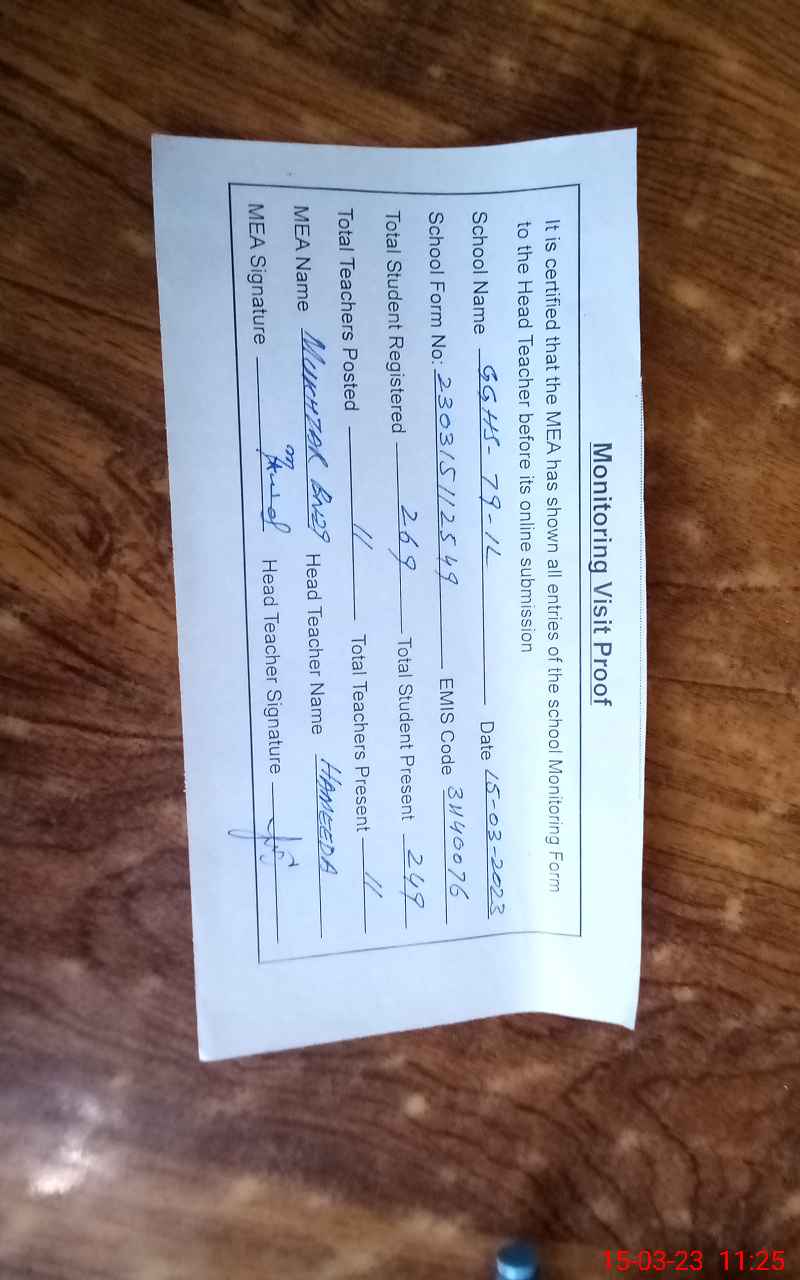 Monitoring Visit Proof
It is certified that the MEA has shown all entries of the school Monitoring Form
to the Head Teacher before its online submission
School Name GGHS-79-1L Date 15-03-2023
School Form No: 230315112549 EMIS Code 31140076
Total Student Registered 269 Total Student Present 249
Total Teachers Posted 11 Total Teachers Present 11
MEA Name MUKHTAR Head Teacher Name HAMEEDA
MEA Signature Head Teacher Signature
15-03-23 11:25